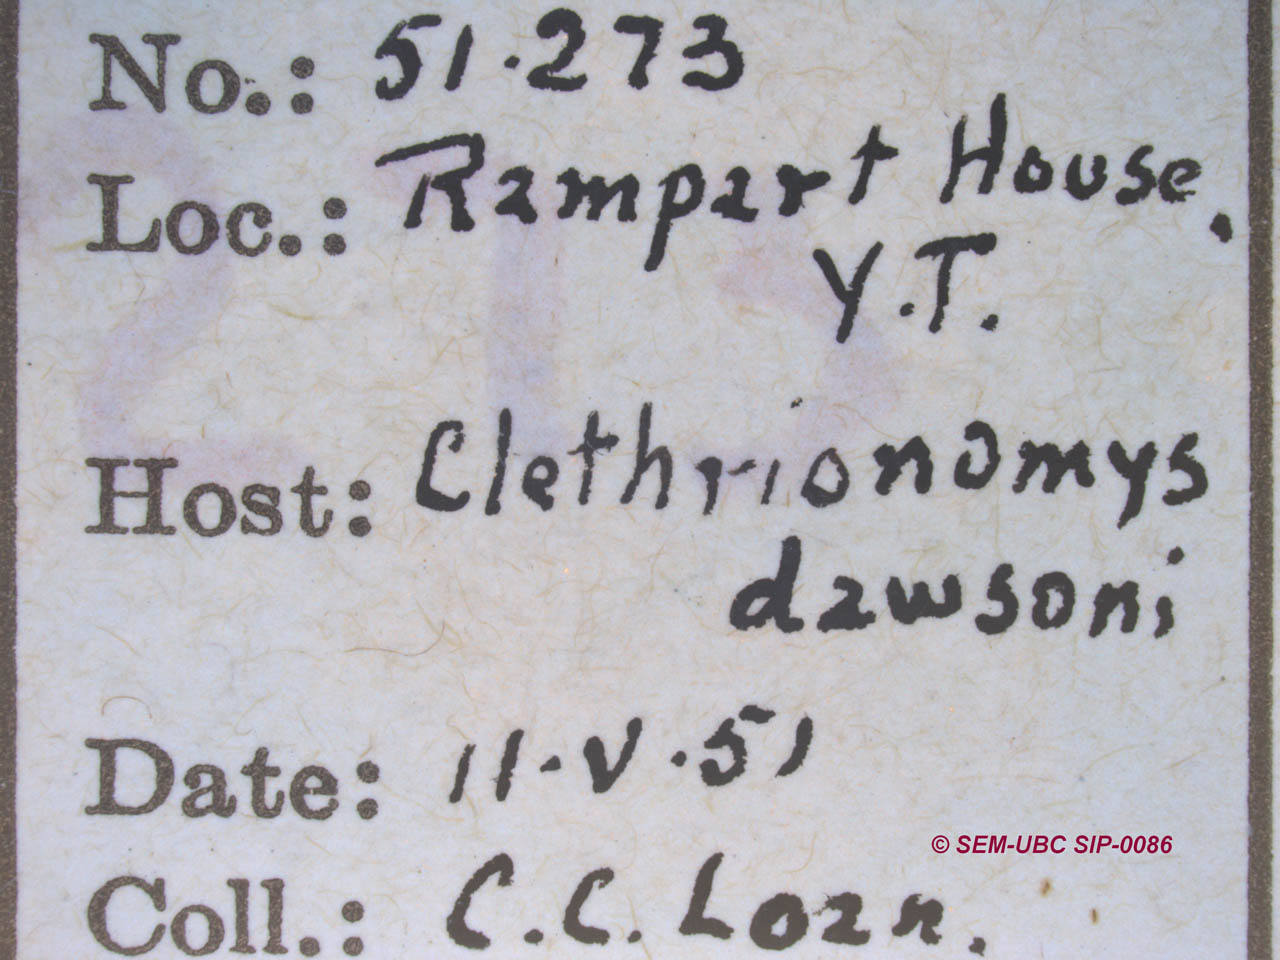 No.: 51.273
Loc.: Rampart House.
Y.T.
Host: Clethrionomys
dawsoni
Date: 11.V.51
© SEM-UBC SIP-0086
Coll.: C.C. Loan.